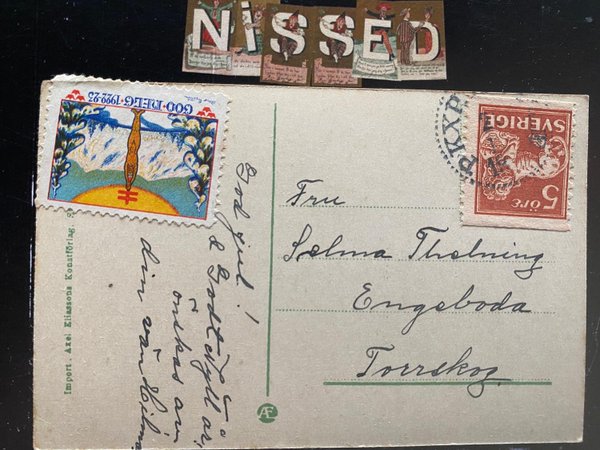 NiSSED
GOD·HELG·1922-23
PKXP
SVERIGE
5 ÖRE
God jul!
& Godt Nytt år,
önskas av
din vän Hilma
Fru
Selma Thelning
Engeboda
Torrskog
Import. Axel Eliassons Konstförlag.
AE